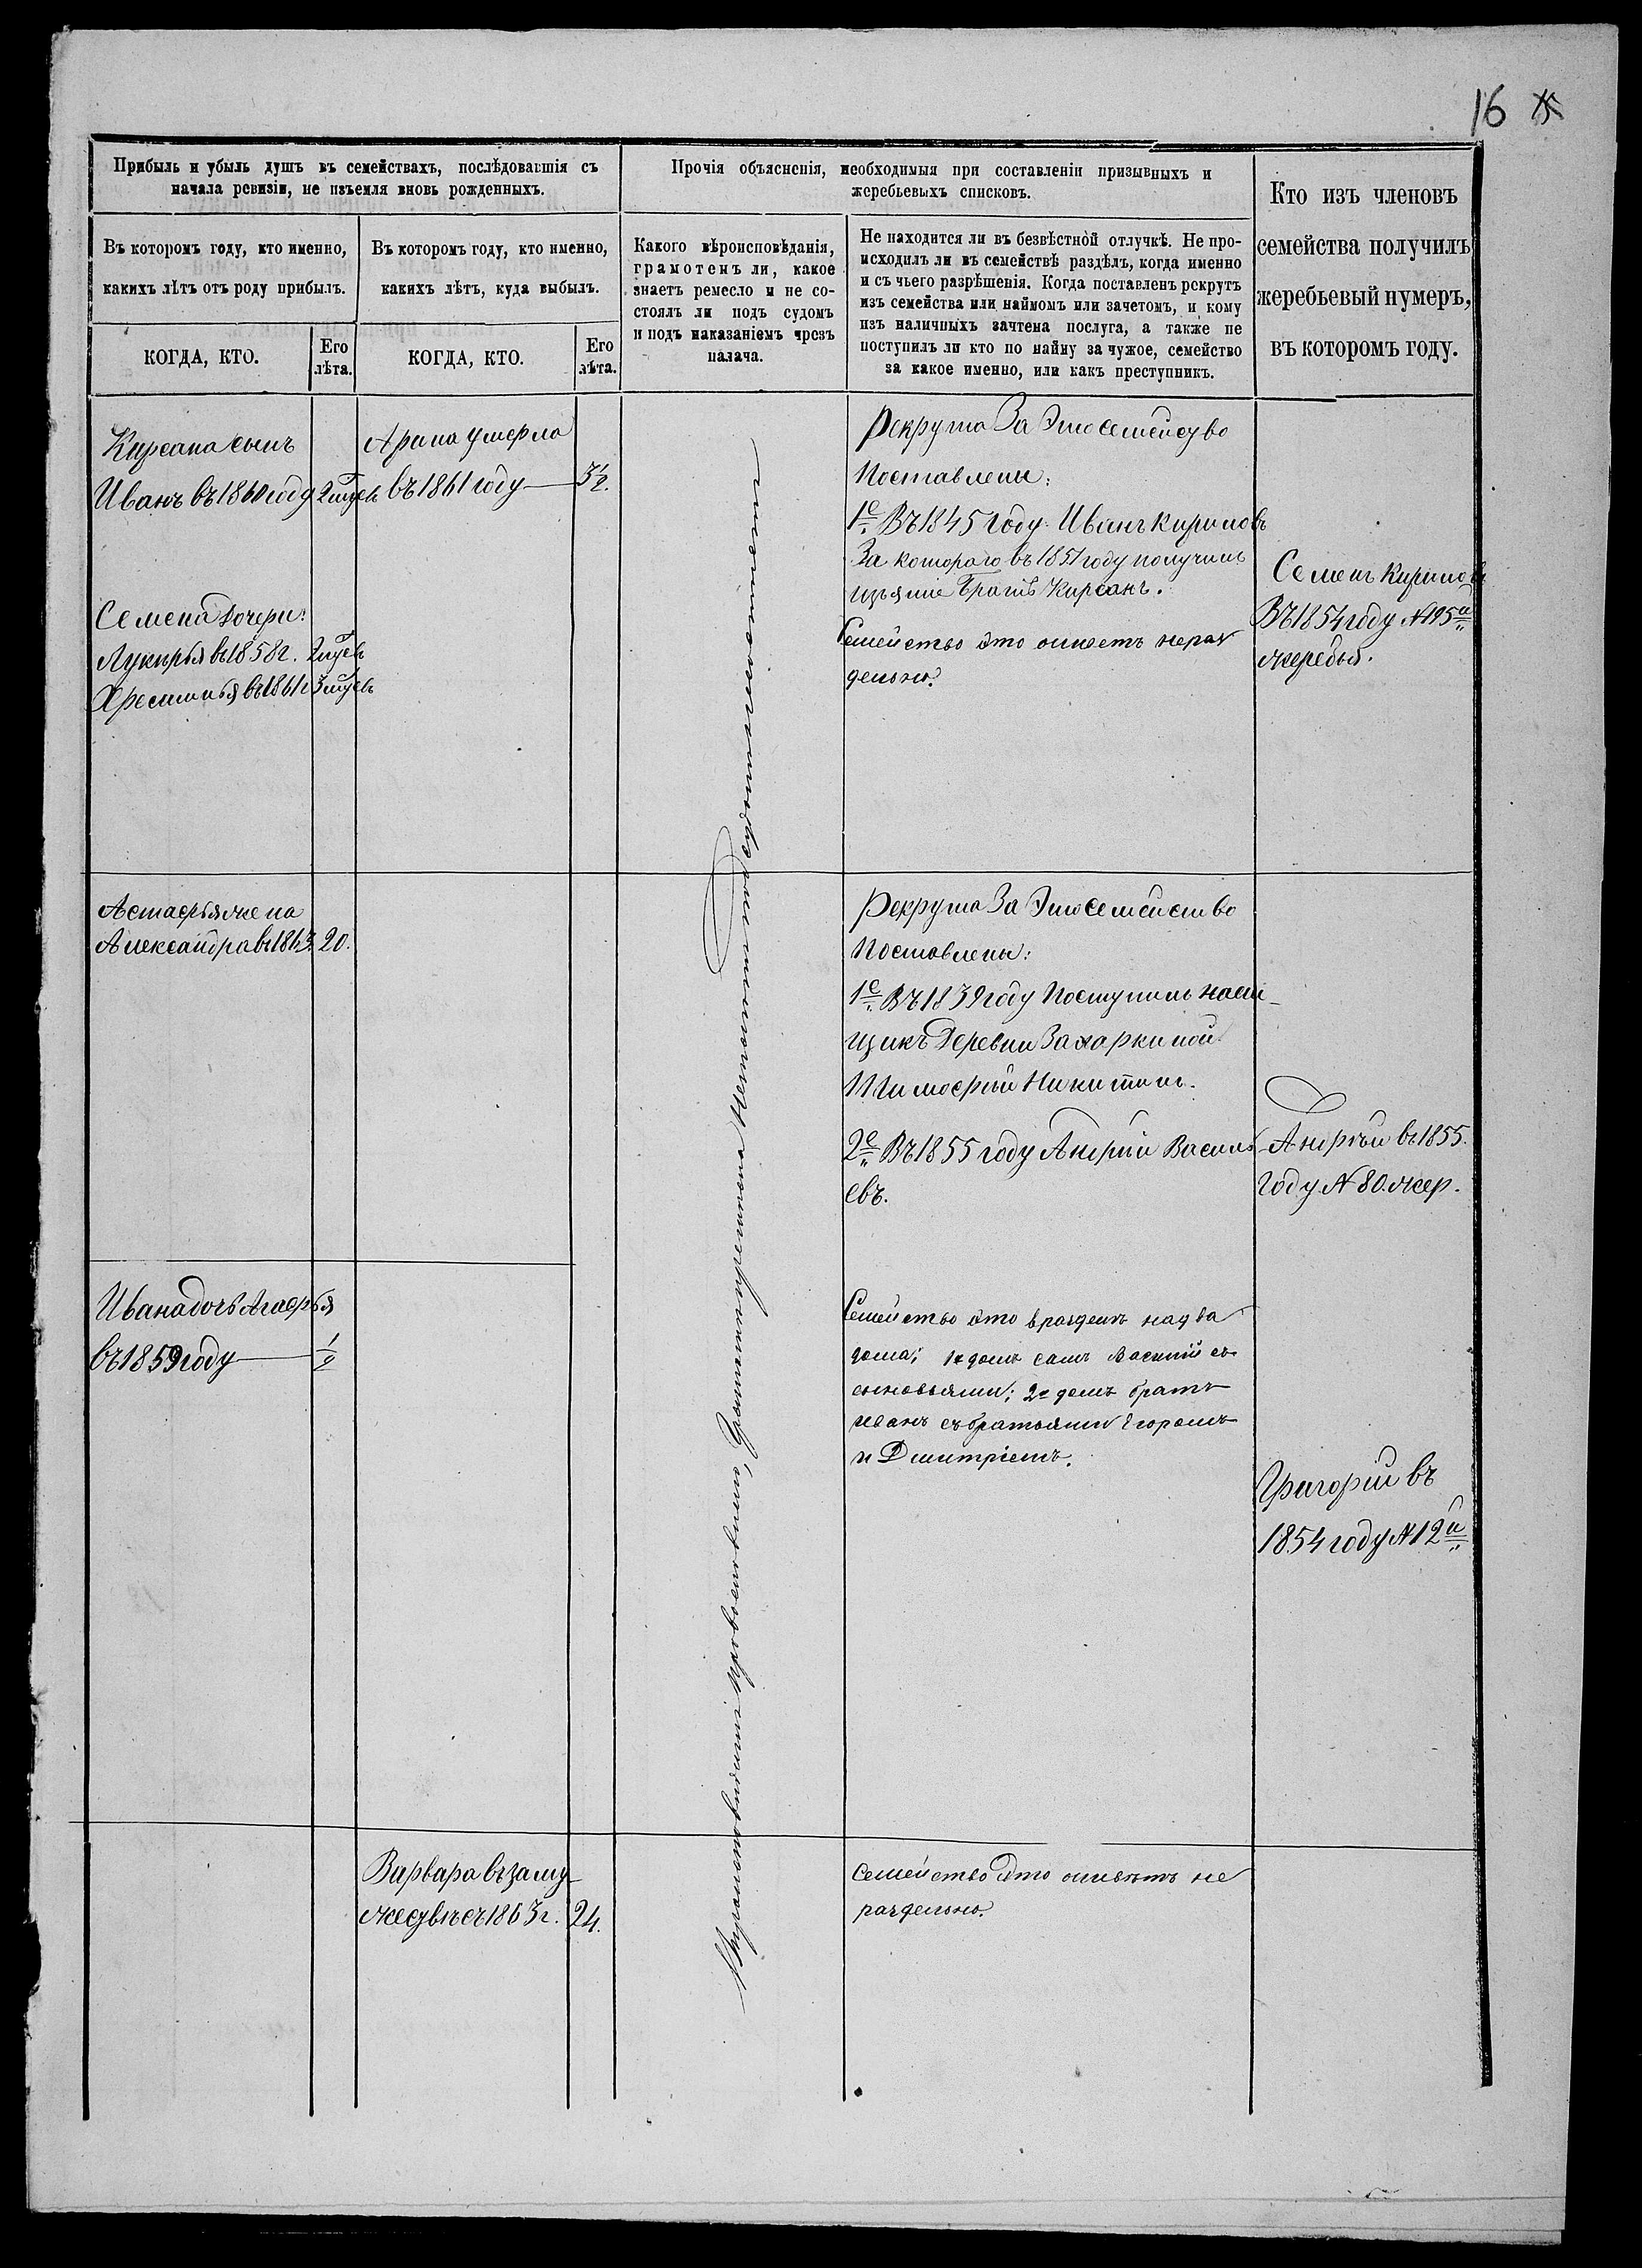 16
Прибыль и убыль душъ въ семействахъ, послѣдовавшія съ
начала ревизіи, не изъемля вновь рожденныхъ.
Прочія объясненія, необходимыя при составленіи призывныхъ и
жеребьевыхъ списковъ.
Кто изъ членовъ
семейства получилъ
жеребьевый нумеръ,
въ которомъ году.
Въ которомъ году, кто именно,
какихъ лѣтъ отъ роду прибылъ.
Въ которомъ году, кто именно,
какихъ лѣтъ, куда выбылъ.
Какого вѣроисповѣданія,
грамотенъ ли, какое
знаетъ ремесло и не со-
стоялъ ли подъ судомъ
и подъ наказаніемъ чрезъ
палача.
Не находится ли въ безвѣстной отлучкѣ. Не про-
исходилъ ли въ семействѣ раздѣлъ, когда именно
и съ чьего разрѣшенія. Когда поставленъ рекрутъ
изъ семейства или наймомъ или зачетомъ, и кому
изъ наличныхъ зачтена послуга, а также не
поступилъ ли кто по найму за чужое, семейство
за какое именно, или какъ преступникъ.
КОГДА, КТО.
Его
лѣта.
КОГДА, КТО.
Его
лѣта.
Кирсана сынъ
Иванъ въ 1860 году
Семена дочери:
Лукирья въ 1858 г.
въ 1861 г
Арина умерла
въ 1861 году
3 1/2.
Рекрута За Это семейство
Поставлены:
1е Въ 1845 году Иванъ Кириловъ
За котораго въ 1851 году получилъ
Братъ Кирсанъ.
Семейство это нераз
дельно.
Семенъ Кириловъ
Въ 1854 году № 195й
жеребья.
Астафья жена
Александра въ 1863
20.
Рекрута За Это Семейство
Поставлены:
1е Въ 1839 году Поступилъ наем-
щикъ Деревни Захаркиной
Тимофей Никитинъ.
2е Въ 1855 году Андрей Василь
евъ.
Андрей въ 1855
году № 80 жер.
Ивана дочь Агафья
въ 1859 году
1/2
Семейство это въ разделѣ на два
дома; 1й домъ самъ Василій съ
сыновьями; 2й домъ братъ
Иванъ съ братьями Егоромъ
и Дмитріемъ.
Григорій въ
1854 году № 12й
Варвара въ заму
жествѣ съ 1863 г.
24.
Семейство это не
раздельно.